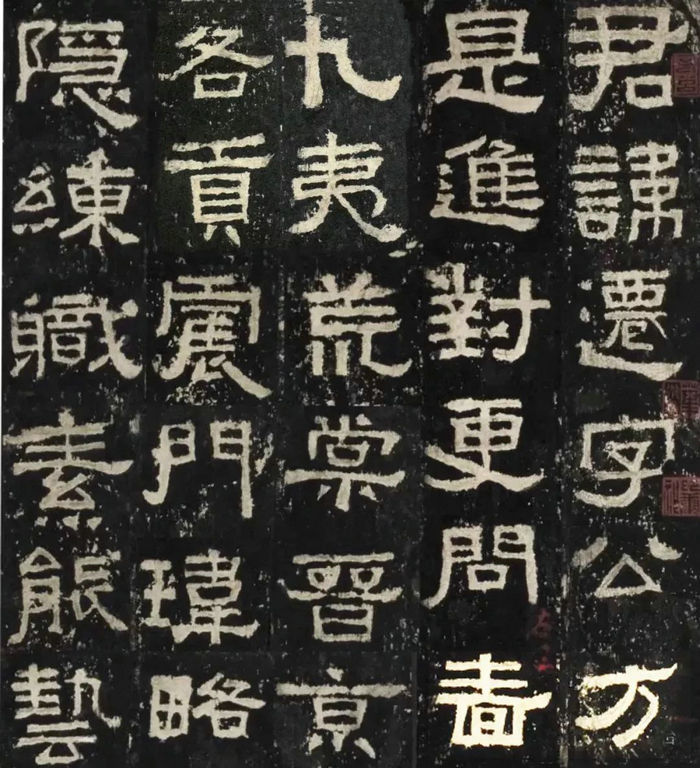 君諱遷字公方
是進對更問嗇
九夷荒棠晉京
各貢震門瑋略
隱練職素能藝